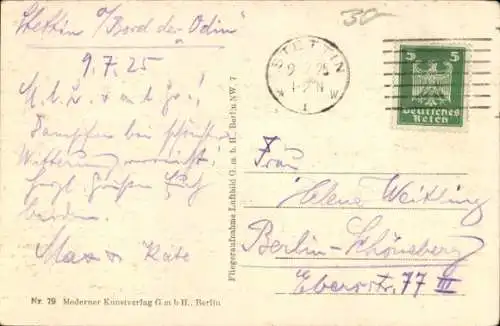 Stettin a/Bord der „Odin"
9.7.25
30
STETTIN
9 7 25
1
W
5 5
Deutsches
Reich
Dampfer bei
Witterung
Herzl. Grüßen Euch
beiden
Max u. Käte
Frau
Helene Weitling
Berlin-Schöneberg
Eberstr. 77 III
Fliegeraufnahme Luftbild G. m. b. H., Berlin NW. 7
Nr. 79 Moderner Kunstverlag G m b H., Berlin